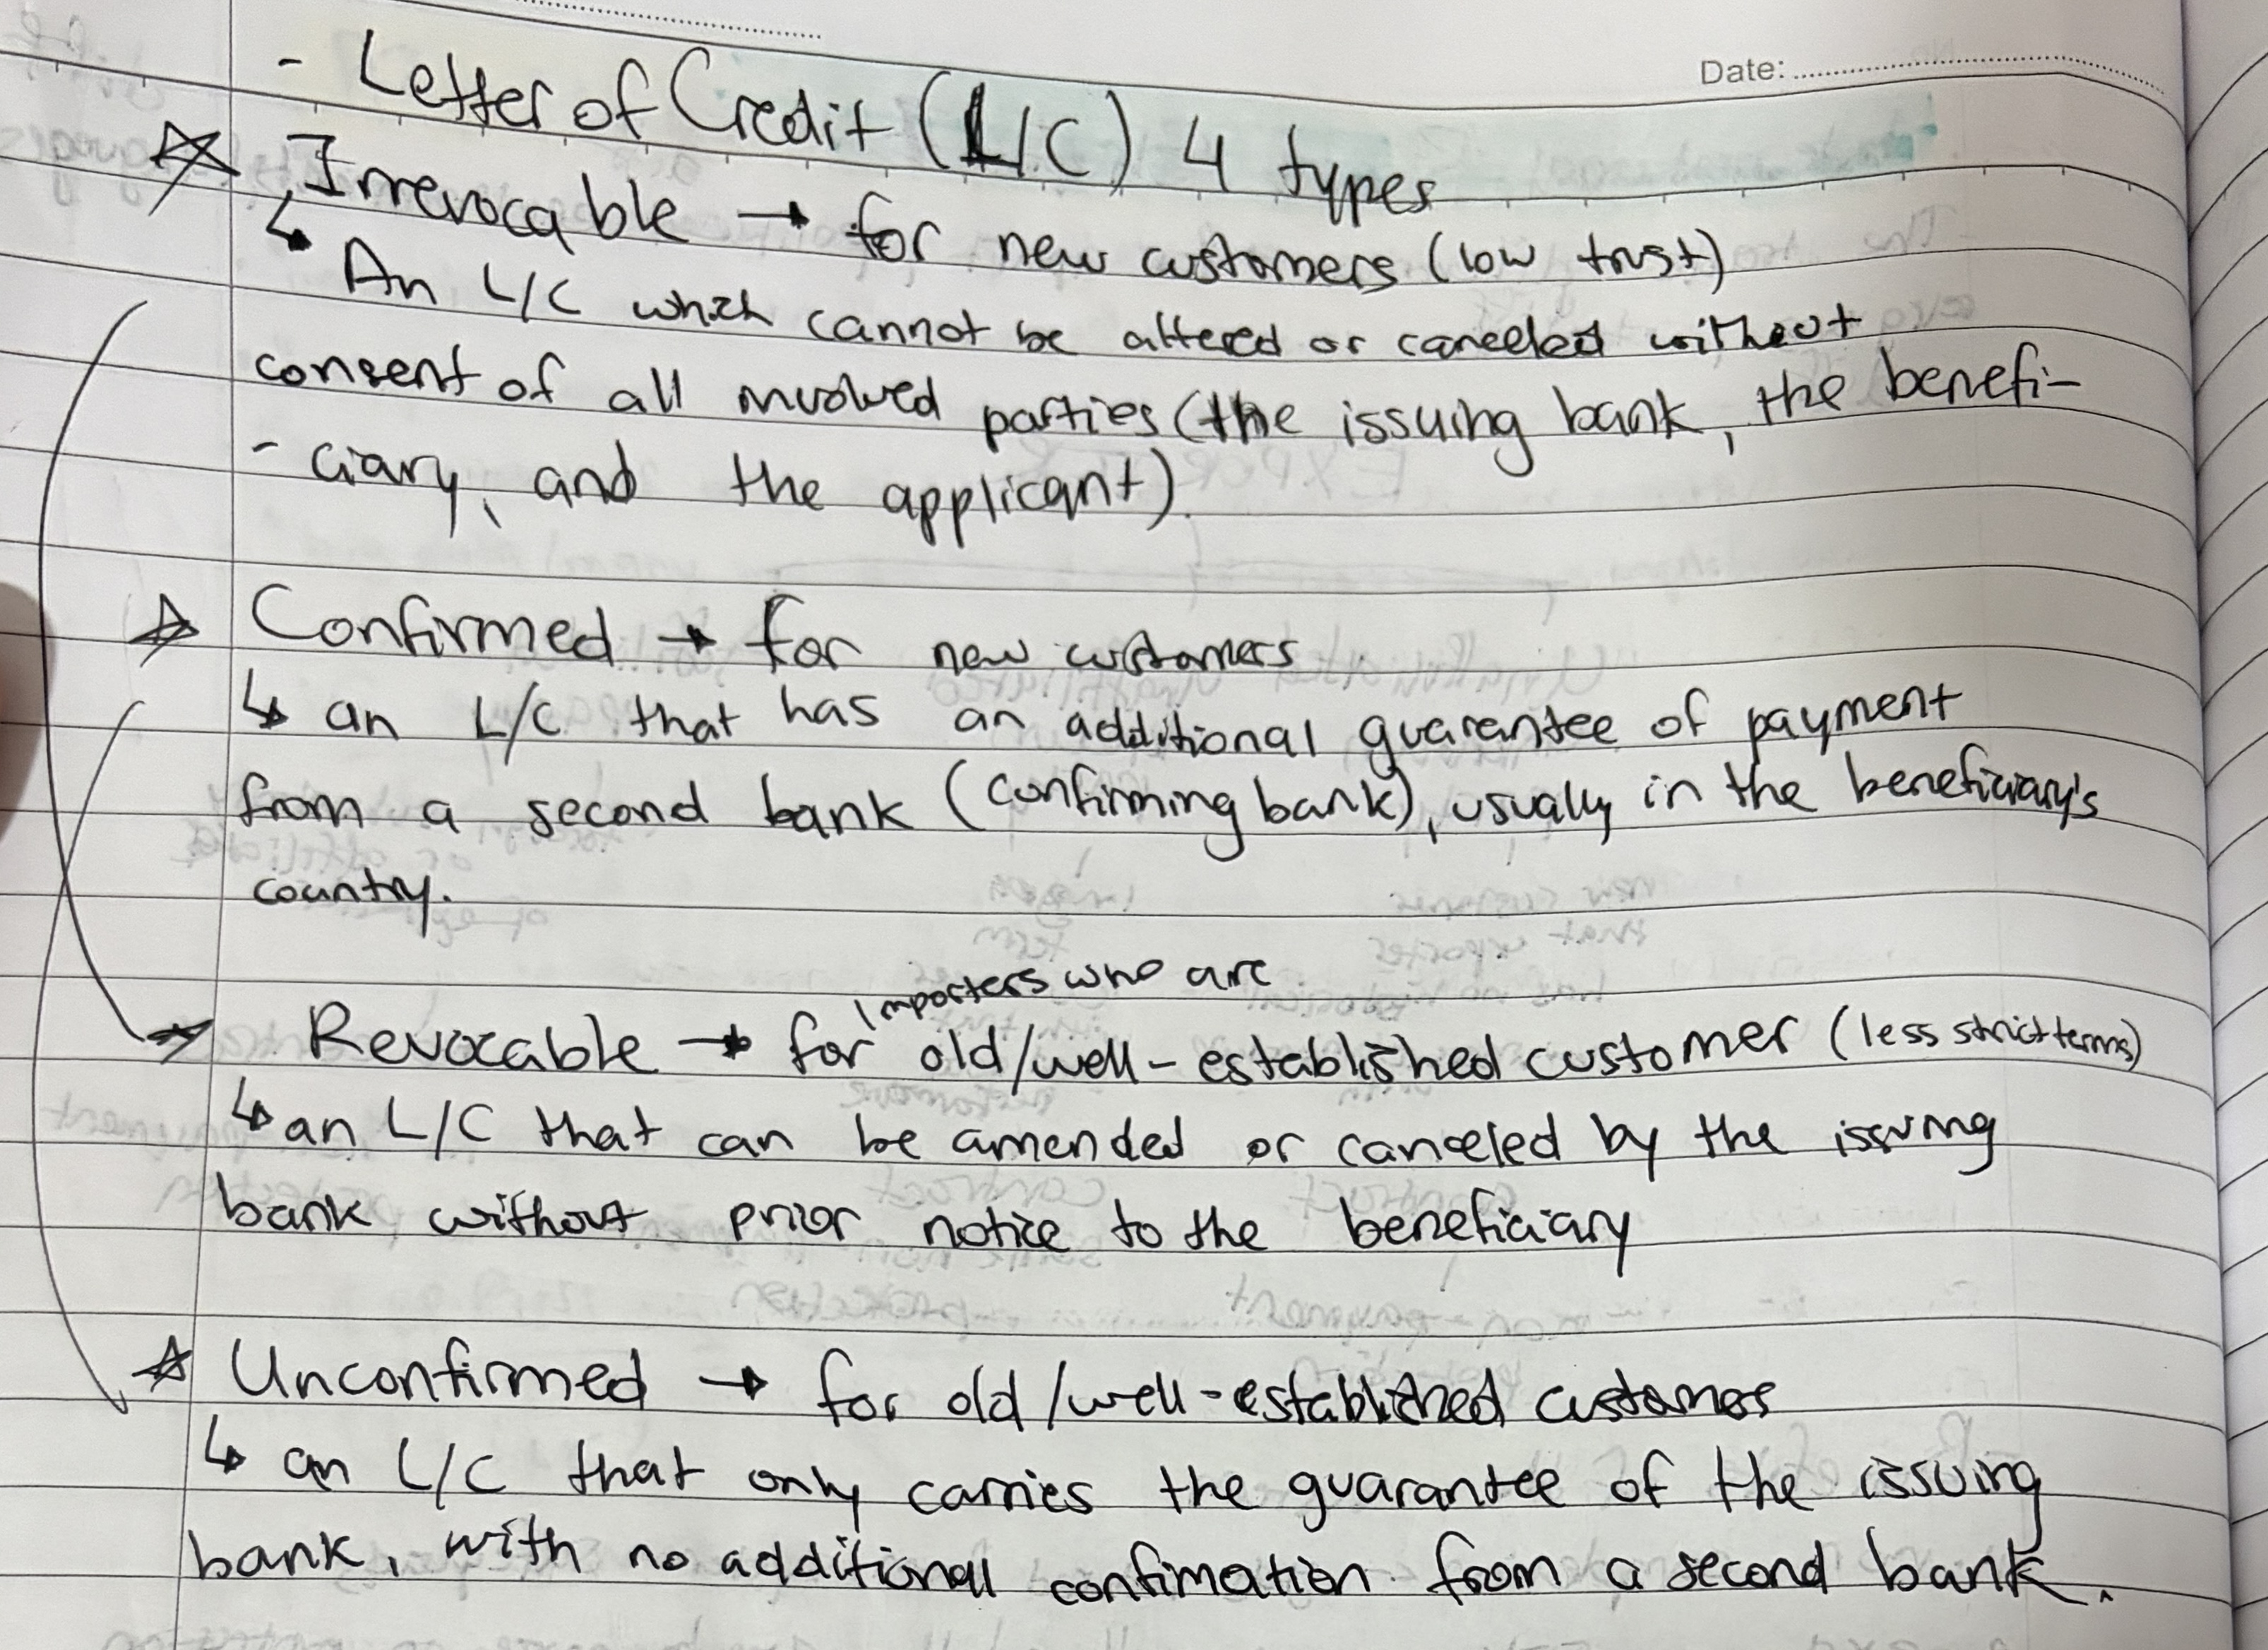 Date:
- Letter of Credit (L/C) 4 types
☆ Irrevocable → for new customers (low trust)
↳ An L/C which cannot be altered or canceled without
consent of all involved parties (the issuing bank, the benefi-
- ciary, and the applicant).
☆ Confirmed → for new customers
↳ an L/C that has an additional guarantee of payment
from a second bank (confirming bank), usually in the beneficiary's
country.
importers who are
☆ Revocable → for old/well-established customer (less strict terms)
↳ an L/C that can be amended or canceled by the issuing
bank without prior notice to the beneficiary
☆ Unconfirmed → for old/well-established customers
↳ an L/C that only carries the guarantee of the issuing
bank, with no additional confimation from a second bank.